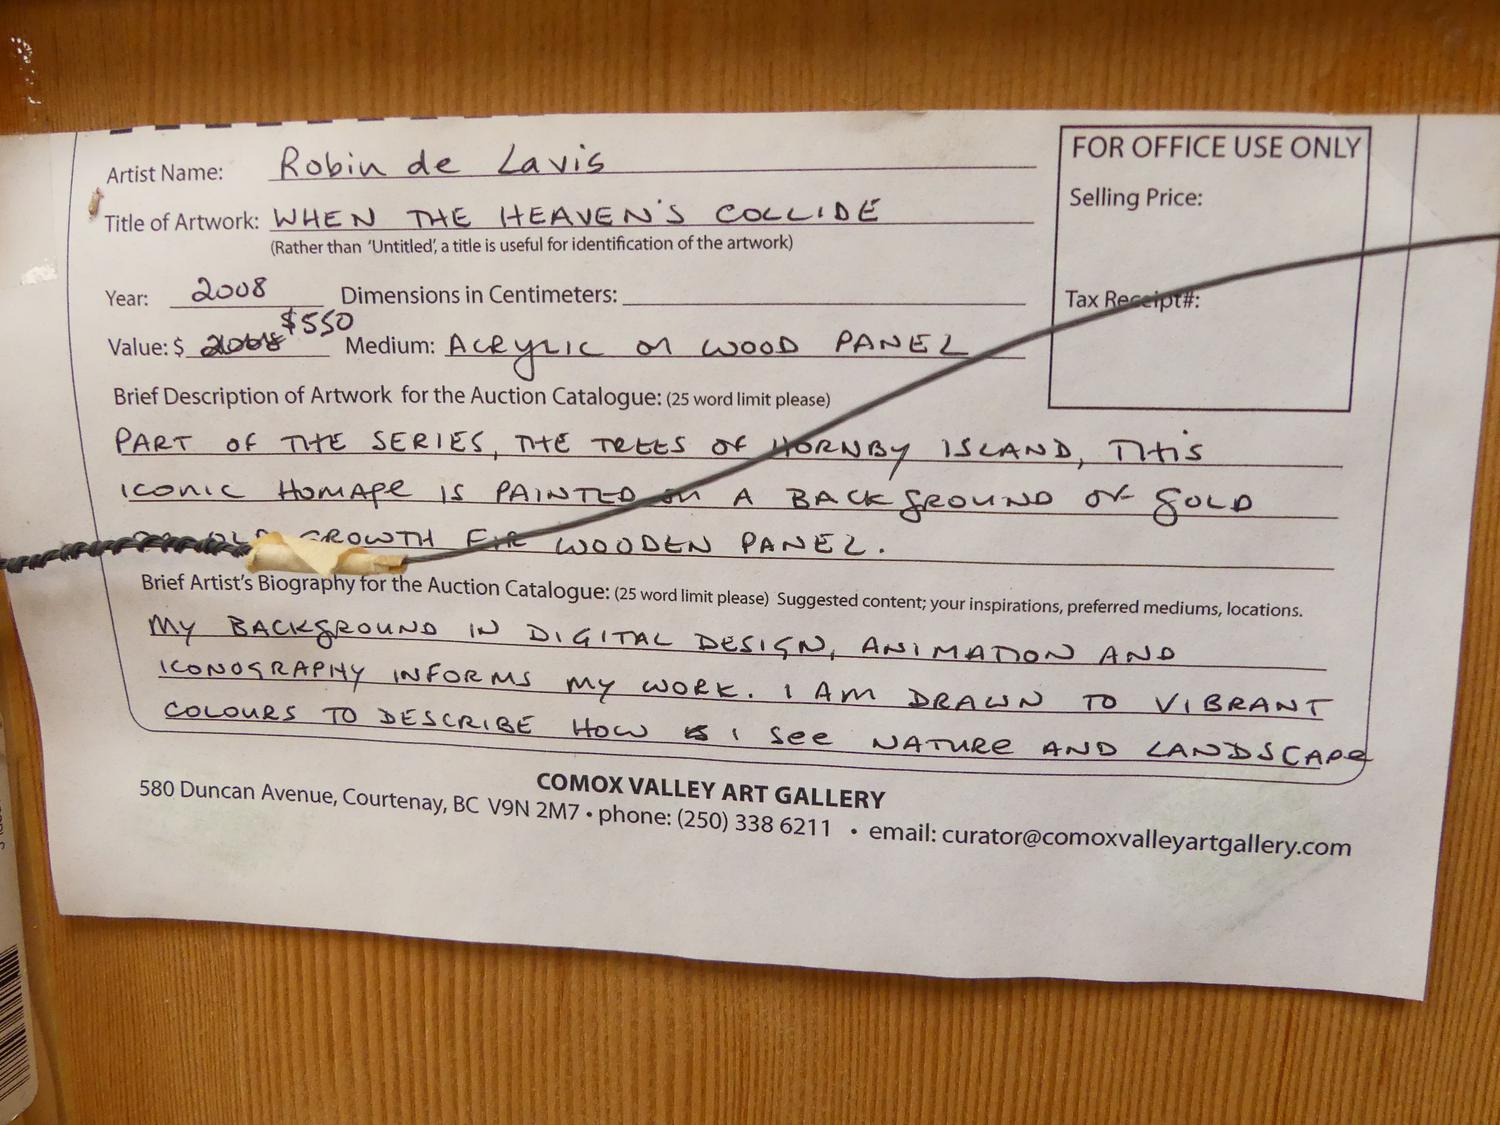 Artist Name: Robin de Lavis
Title of Artwork: WHEN THE HEAVEN'S COLLIDE
(Rather than 'Untitled', a title is useful for identification of the artwork)
Year: 2008 Dimensions in Centimeters:
$550
Value: $ 2008 Medium: ACRYLIC on WOOD PANEL
FOR OFFICE USE ONLY
Selling Price:
Tax Receipt#:
Brief Description of Artwork for the Auction Catalogue: (25 word limit please)
PART OF THE SERIES, THE TREES OF HORNBY ISLAND, THIS
ICONIC HOMAGE IS PAINTED ON A BACKGROUND OF GOLD
OLD GROWTH FIR WOODEN PANEL.
Brief Artist's Biography for the Auction Catalogue: (25 word limit please) Suggested content; your inspirations, preferred mediums, locations.
MY BACKGROUND IN DIGITAL DESIGN, ANIMATION AND
ICONOGRAPHY INFORMS MY WORK. I AM DRAWN TO VIBRANT
COLOURS TO DESCRIBE HOW I SEE NATURE AND LANDSCAPE
COMOX VALLEY ART GALLERY
580 Duncan Avenue, Courtenay, BC V9N 2M7 • phone: (250) 338 6211 • email: curator@comoxvalleyartgallery.com